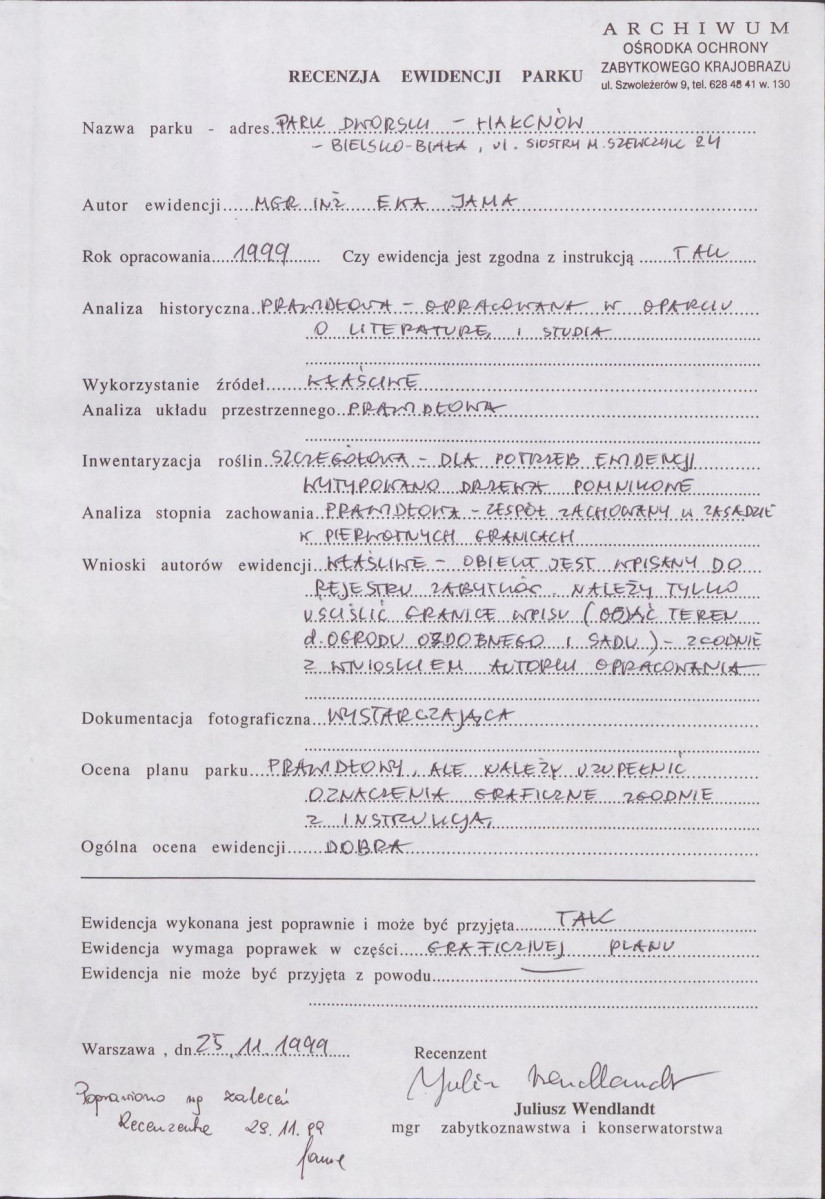 ARCHIWUM
OŚRODKA OCHRONY
ZABYTKOWEGO KRAJOBRAZU
ul. Szwoleżerów 9, tel. 628 48 41 w. 130
RECENZJA EWIDENCJI PARKU
Nazwa parku - adres PARK DWORSKI - HAŁCNÓW
- BIELSKO-BIAŁA, ul. SIOSTRY M. SZEWCZYK 24
Autor ewidencji MGR INŻ EWA JAMA
Rok opracowania 1999 Czy ewidencja jest zgodna z instrukcją TAK
Analiza historyczna PRAWIDŁOWA - OPRACOWANA W OPARCIU
O LITERATURĘ I STUDIA
Wykorzystanie źródeł WŁAŚCIWE
Analiza układu przestrzennego PRAWIDŁOWA
Inwentaryzacja roślin SZCZEGÓŁOWA - DLA POTRZEB EWIDENCJI
WYTYPOWANO DRZEWA POMNIKOWE
Analiza stopnia zachowania PRAWIDŁOWA - ZESPÓŁ ZACHOWANY W ZASADZIE
W PIERWOTNYCH GRANICACH
Wnioski autorów ewidencji WŁAŚCIWE - OBIEKT JEST WPISANY DO
REJESTRU ZABYTKÓW. NALEŻY TYLKO
UŚCIŚLIĆ GRANICE WPISU (OBJĄĆ TEREN
d. OGRODU OZDOBNEGO I SADU) - ZGODNIE
Z WNIOSKIEM AUTORKI OPRACOWANIA
Dokumentacja fotograficzna WYSTARCZAJĄCA
Ocena planu parku PRAWIDŁOWY, ALE NALEŻY UZUPEŁNIĆ
OZNACZENIA GRAFICZNE ZGODNIE
Z INSTRUKCJĄ
Ogólna ocena ewidencji DOBRA
Ewidencja wykonana jest poprawnie i może być przyjęta TAK
Ewidencja wymaga poprawek w części GRAFICZNEJ PLANU
Ewidencja nie może być przyjęta z powodu —
Warszawa, dn. 25.11.1999
Recenzent
Juliusz Wendlandt
Juliusz Wendlandt
mgr zabytkoznawstwa i konserwatorstwa
Poprawiono wg zaleceń
Recenzenta 29.11.99